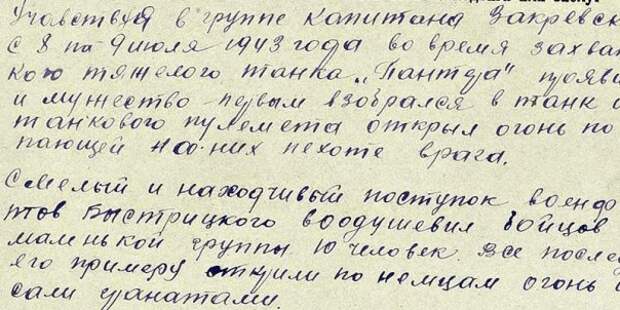 Учавствуя в группе капитана Закревск
с 8 на 9 июля 1943 года во время захва
кого тяжелого танка „Пантера" прояви
и мужество первым взобрался в танк и
танкового пулемета открыл огонь по
пающей на них пехоте врага.
Смелый и находчивый поступок военф
Быстрицкого воодушевил бойцов
маленькой группы 10 человек. Все после
его примеру открыли по немцам огонь
сали гранатами.